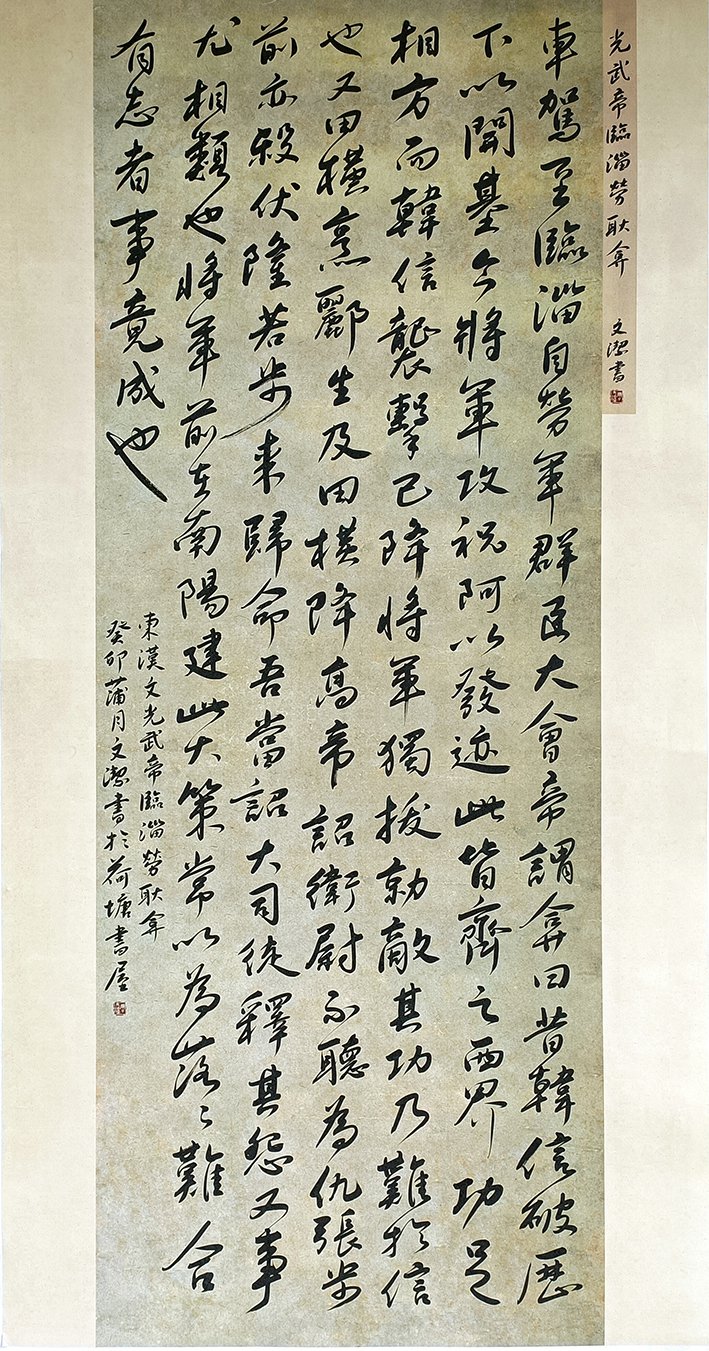 光武帝臨淄勞耿弇 文潔書
車駕至臨淄自勞軍群臣大會帝謂弇曰昔韓信破歷
下以開基今將軍攻祝阿以發迹此皆齊之西界功足
相方而韓信襲擊已降將軍獨拔勍敵其功乃難於信
也又田橫烹酈生及田橫降高帝詔衛尉不聽為仇張步
前亦殺伏隆若步來歸命吾當詔大司徒釋其怨又事
尤相類也將軍前在南陽建此大策常以為落々難合
有志者事竟成也
東漢文光武帝臨淄勞耿弇
癸卯蒲月文潔書於荷塘書屋